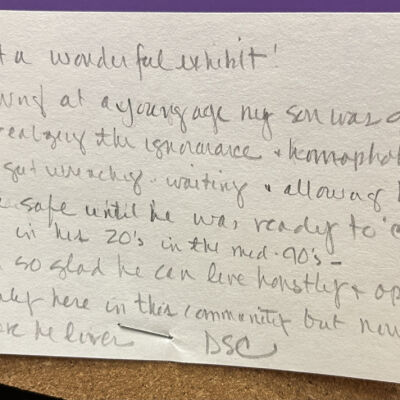 t a wonderful exhibit!
wing at a young age my son was
realizing the ignorance + homophob
gut wrenching. waiting + allowing
safe until he was ready to
in his 20's in the mid-90's -
so glad he can live honestly + op
nly here in this community but now
re he lives DSC